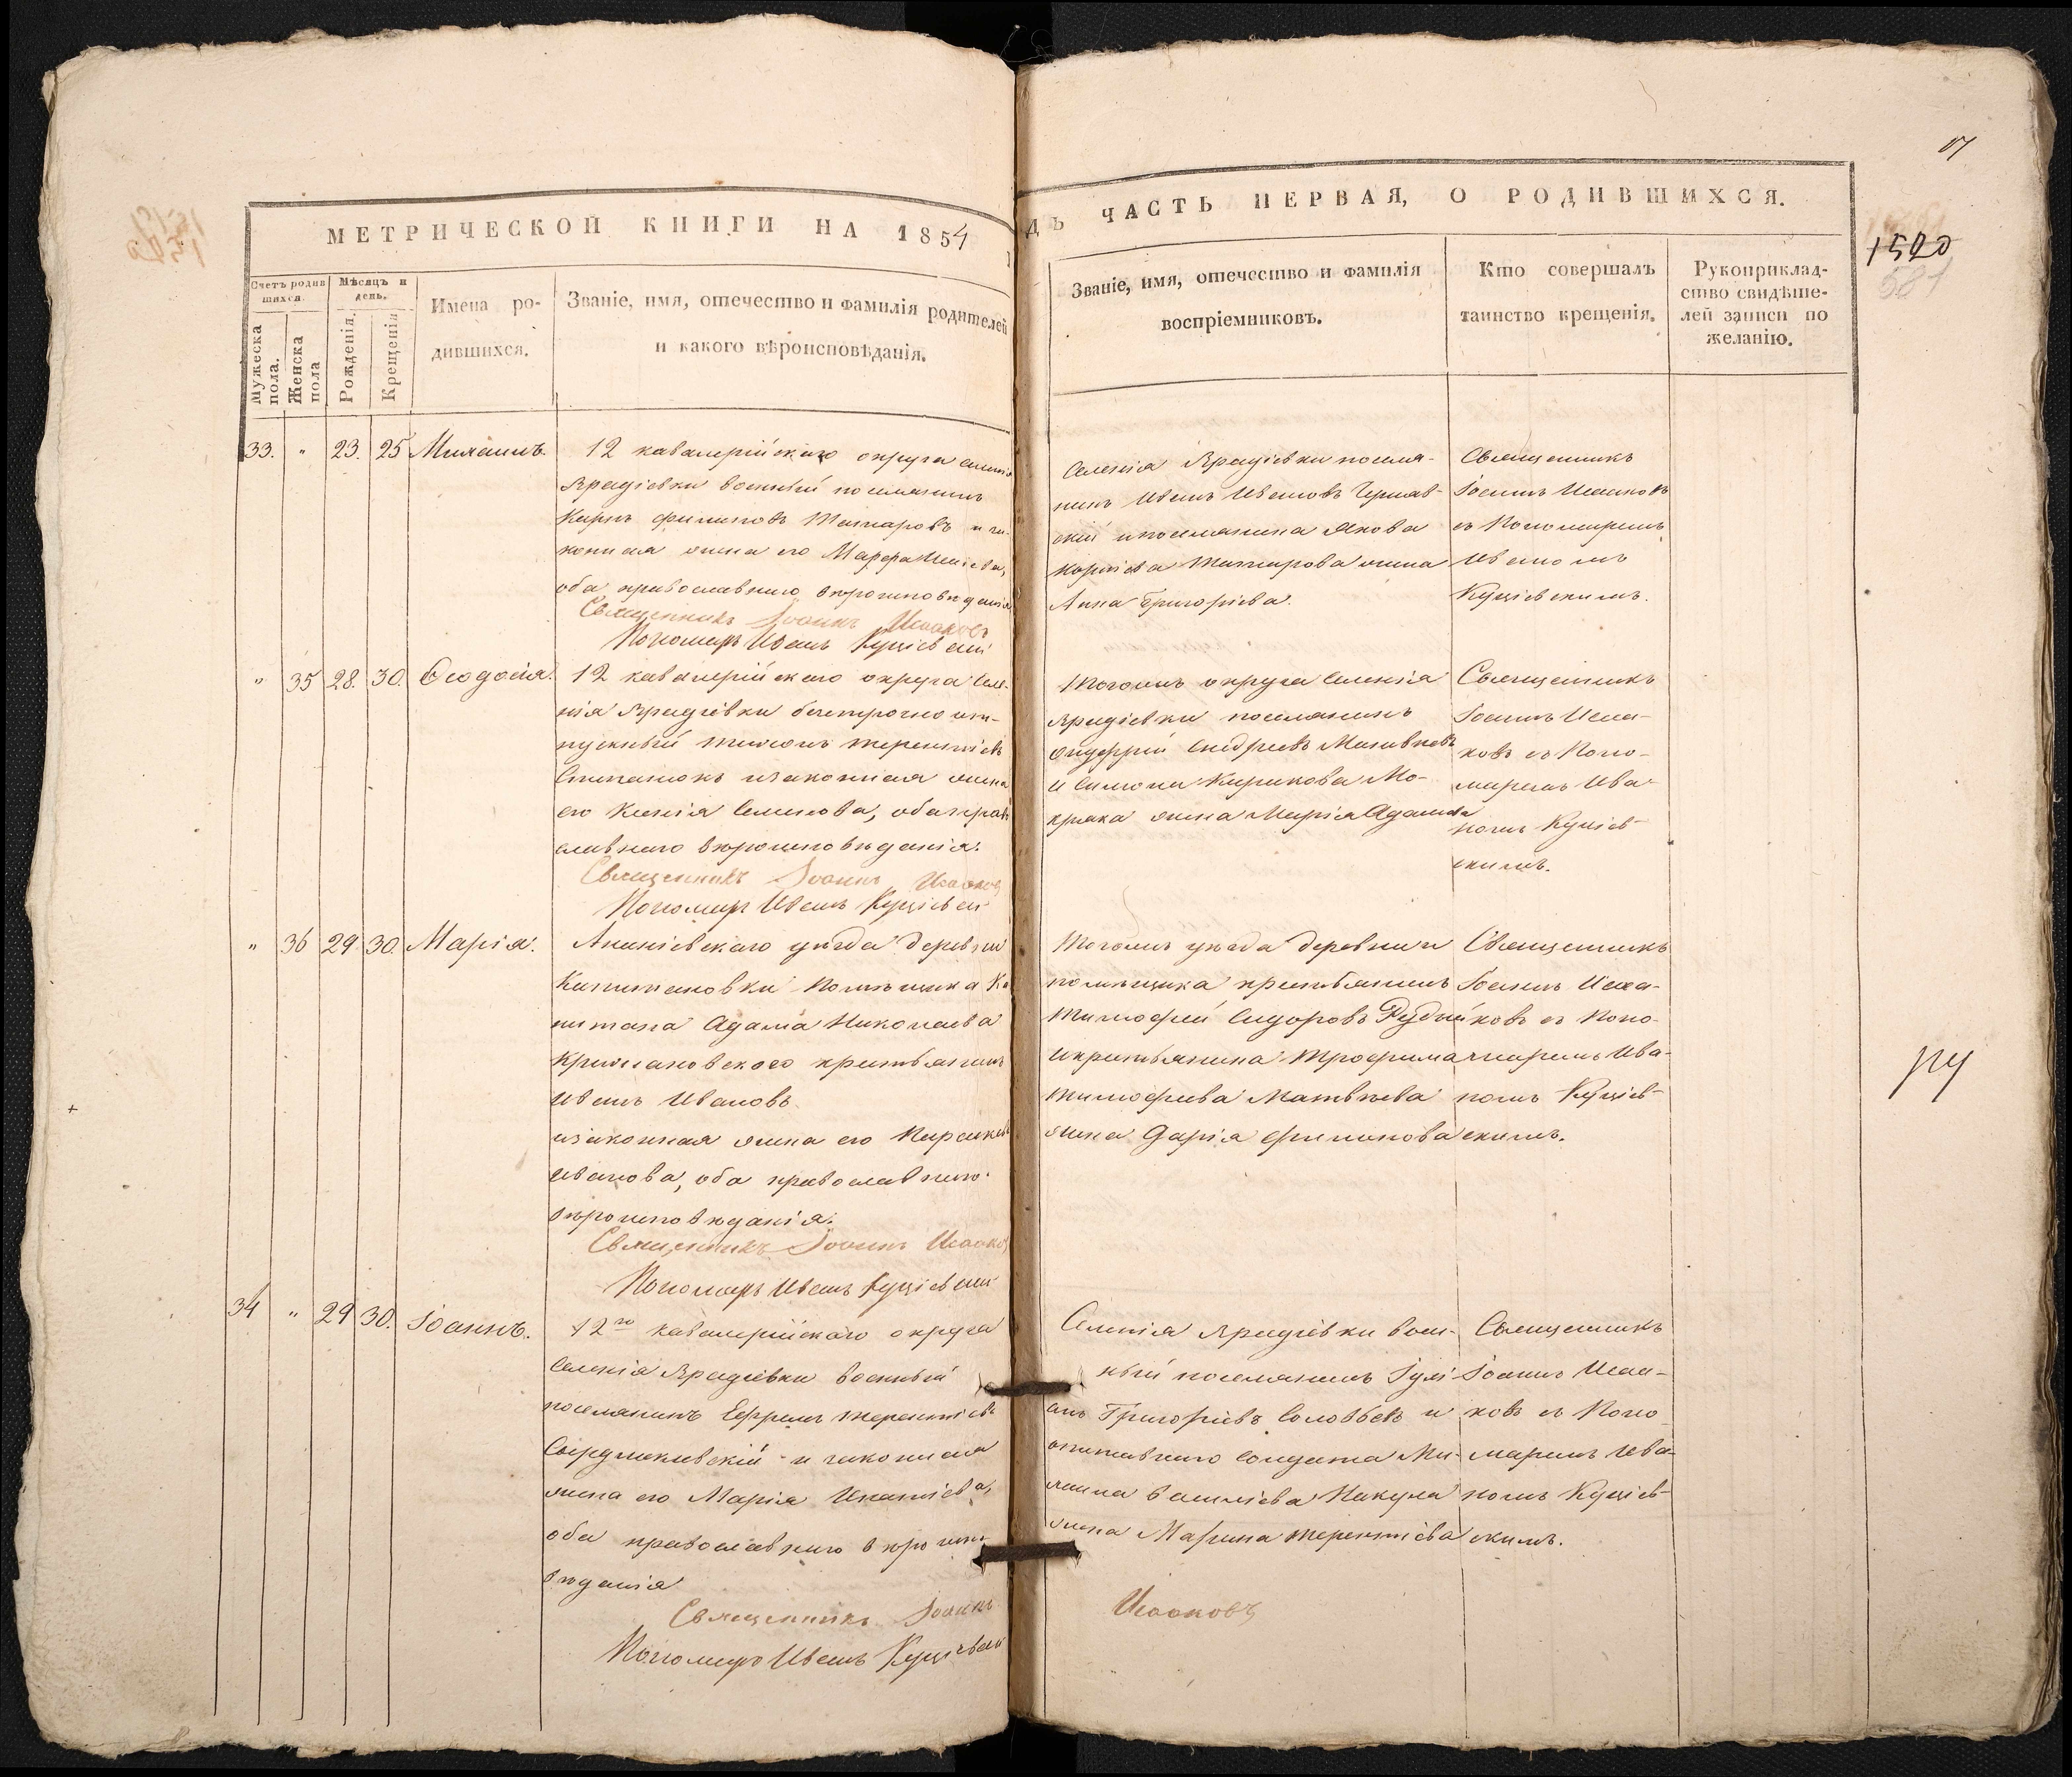 МЕТРИЧЕСКОЙ КНИГИ НА 1854
ДЪ ЧАСТЬ ПЕРВАЯ, О РОДИВШИХСЯ.
Счетъ родив
шихся.
Мужеска пола.
Женска пола
Мѣсяцъ и
день.
Рожденія.
Крещенія
Имена ро-
дившихся.
Званіе, имя, отечество и фамилія родителей
и какого вѣроисповѣданія.
Званіе, имя, отечество и фамилія
воспріемниковъ.
Кто совершалъ
таинство крещенія.
Рукоприклад-
ство свидѣте-
лей записи по
желанію.
1520
581
33. " 23. 25 Михаилъ.
12 кавалерійскаго округа селенія
Врадіевки военный поселянинъ
Карпъ Филиповъ и за-
конная жена его Марфа
оба православнаго вѣроисповѣданія
Священникъ Іоаннъ Исаковъ
Пономарь Иванъ Куціевскій
Селенія Врадіевки поселя-
нинъ Иванъ Ивановъ Чернав-
скій и поселянина Якова
жена
Анна Григоріева.
Священникъ
Іоаннъ Исааковъ
съ Пономаремъ
Иваномъ
Куціевскимъ.
" 35 28. 30. Ѳеодосія.
12 кавалерійскаго округа Селе-
нія Врадіевки безсрочно от-
пускный Терентіевъ
Степанюкъ и законная жена
его Ксенія Семенова, оба право
славнаго вѣроисповѣданія.
Священникъ Іоаннъ Исааковъ
Пономарь Иванъ Куціевскій
Тогожъ округа Селенія
Врадіевки поселянинъ
Онуфрій Андреевъ
и Симона Кирикова Мо-
жена Марія Адамова
Священникъ
Іоаннъ Исаа-
ковъ съ Поно-
маремъ Ива-
номъ Куціев-
скимъ.
" 36 29 30. Марія.
Ананіевскаго уѣзда деревни
помѣщика Ка
питана Адама Николаева
крестьянинъ
Иванъ Ивановъ
и законная жена его Параскева
Иванова, оба православнаго
вѣроисповѣданія.
Священникъ Іоаннъ Исааков
Пономарь Иванъ Куціевскій
Тогожъ уѣзда деревни и
помѣщика крестьянинъ
Тимофей Сидоровъ Рудый
и крестьянина Трофима
Тимофеева Матвѣева
жена Дарія Филипова
Священникъ
Іоаннъ Исаа-
ковъ съ Поно-
маремъ Ива-
номъ Куціев-
скимъ.
34 " 29 30. Іоаннъ.
12го кавалерійскаго округа
Селенія Врадіевки военный
поселянинъ Ефремъ Терентіевъ
и законная
жена его Марія Игнатіева,
оба православнаго вѣроиспо-
вѣданія
Священникъ Іоаннъ
Исааковъ
Пономарь Иванъ Куціевскій
Селенія Врадіевки воен-
ный поселянинъ Іулі-
анъ Григоріевъ Соловьевъ и
отставнаго солдата Ми-
хаила Василіева Никула
жена Марина Терентіева
Священникъ
Іоаннъ Исаа-
ковъ съ Поно-
маремъ Ива-
номъ Куціев-
скимъ.